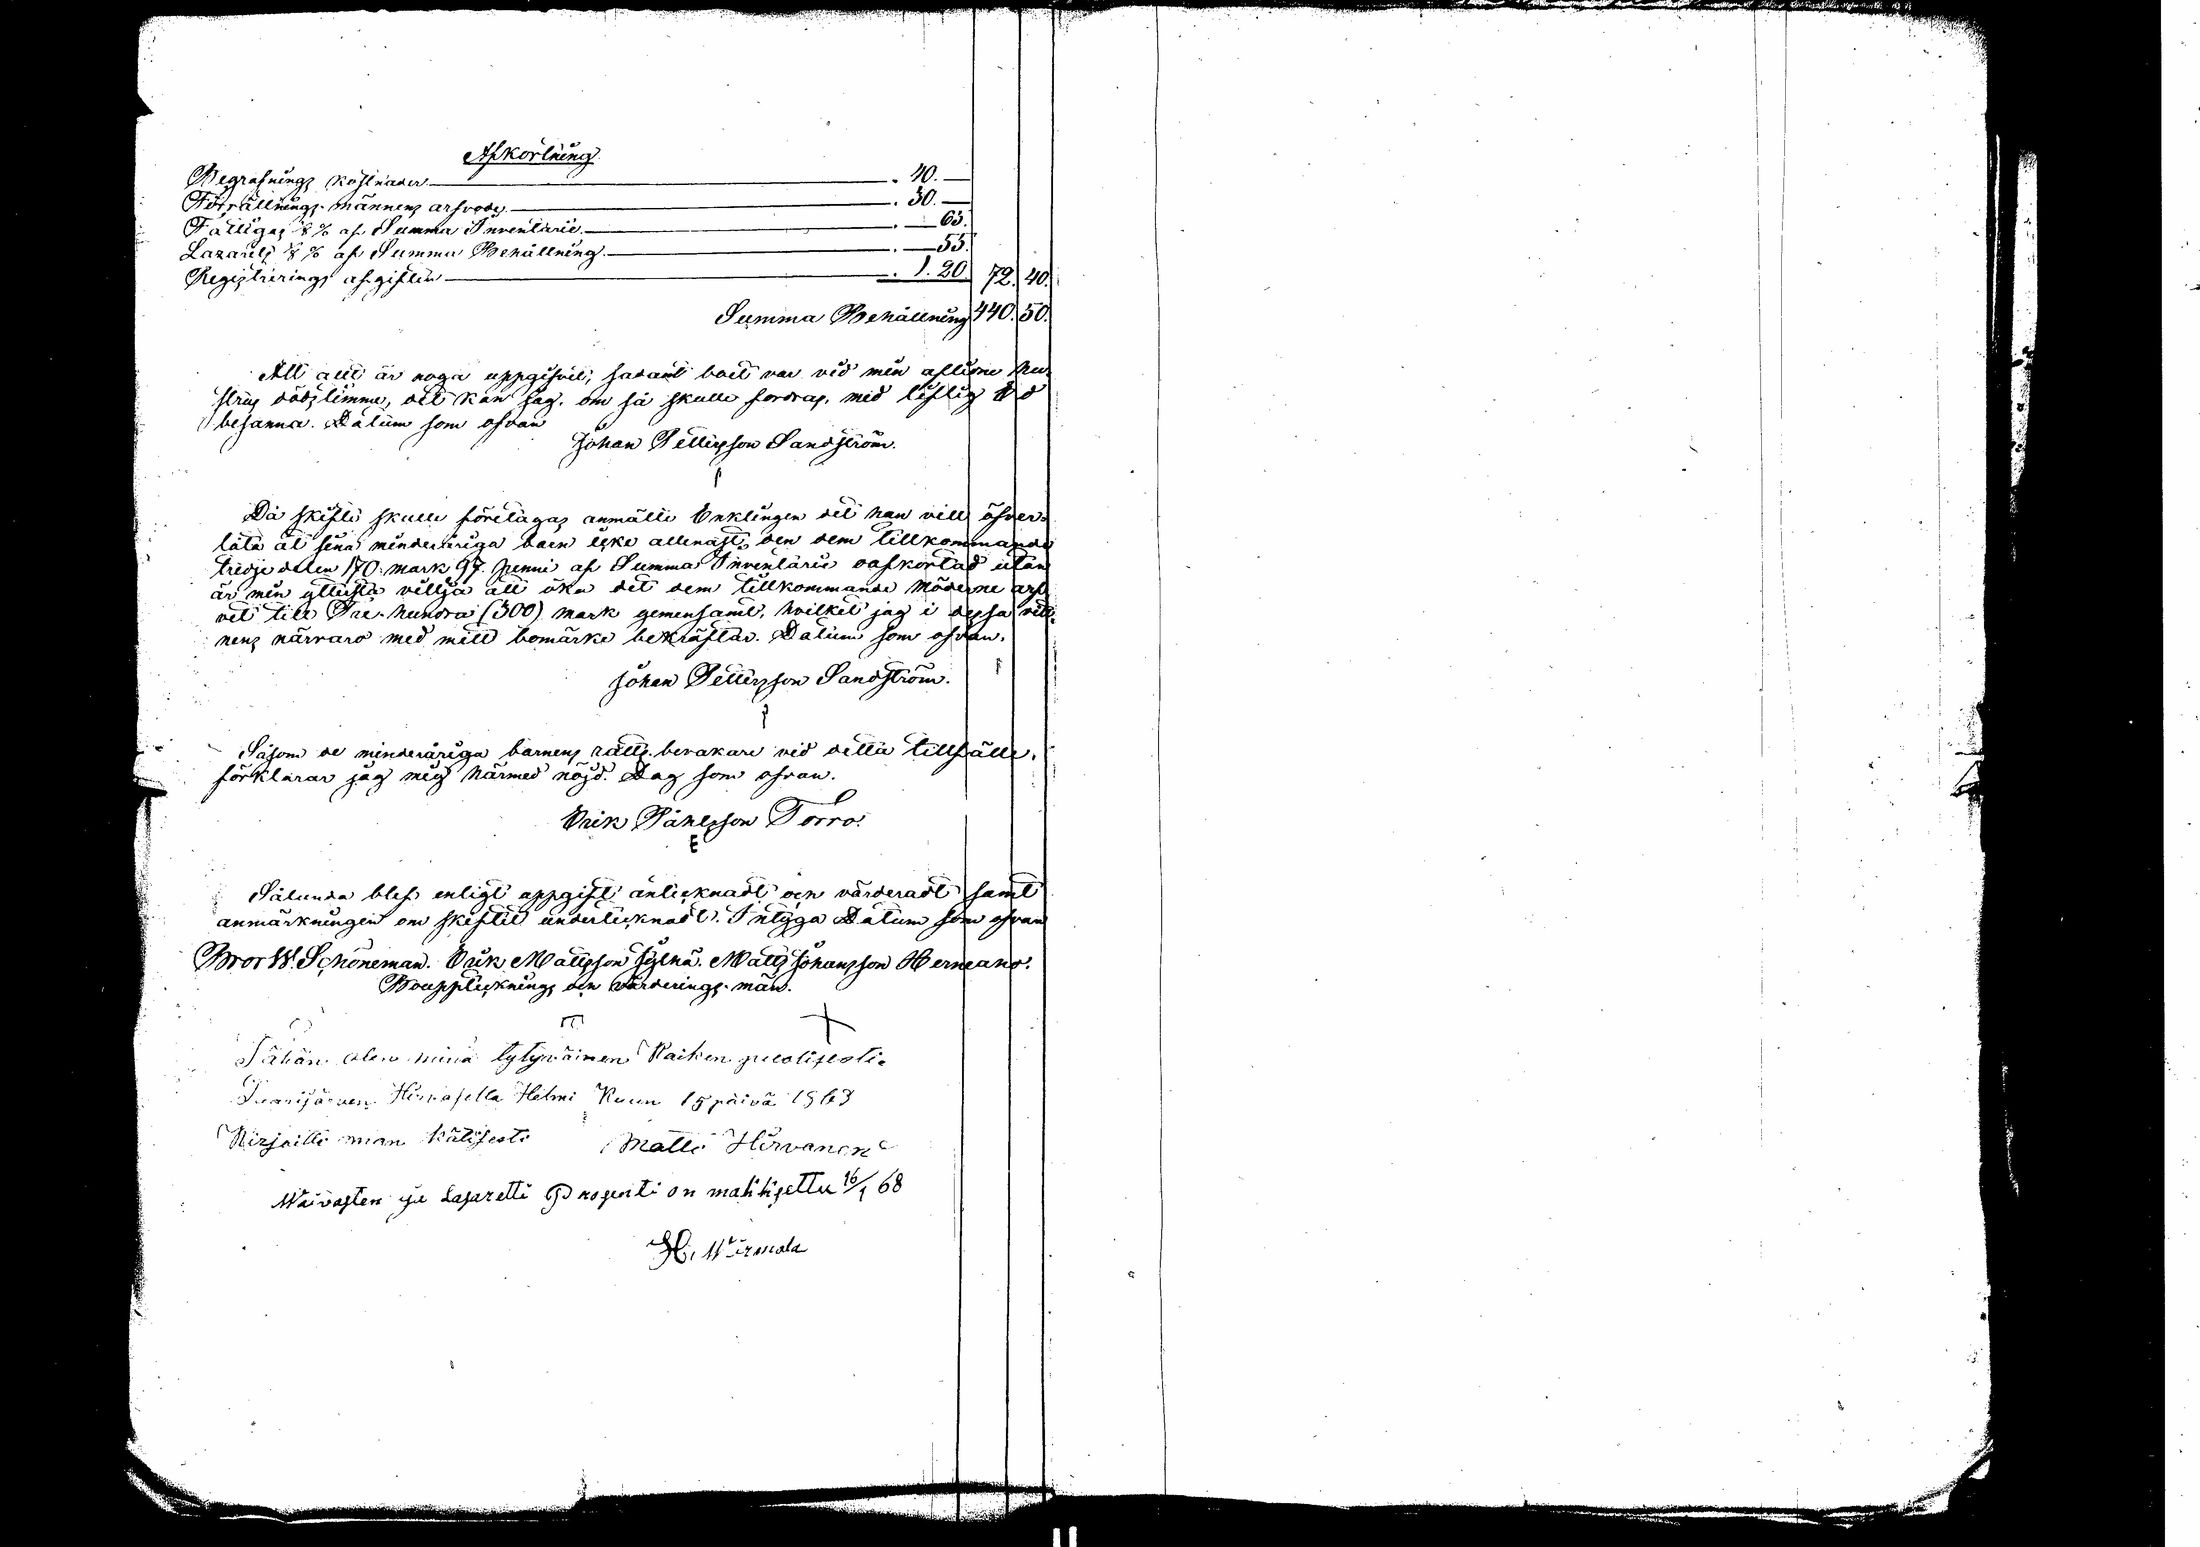 Afkortning
Begrafnings kostnader . 40. —
Förrättnings männens arfvode . 30. —
Fattigas 1/8 % af Summa Inventarie . — 65.
Lazaretts 1/8 % af Summa Behållning . — 55.
Registrerings afgiften . 1. 20. 72. 40.
Summa Behållning 440. 50.
Att allt är noga uppgifvet, sådant boet var vid min aflidne hu-
strus dödstimma, det kan jag, om så skulle fordras, med liflig Ed
besanna. Datum som ofvan
Johan Pettersson Sandström.
Då skifte skulle företagas anmälte Enklingen det han vill öfver-
låta åt sina minderåriga barn icke allenast den dem tillkommande
tredje delen 170. mark 97. penni af Summa Inventarie oafkortad utan
är min yttersta villja att öka det dem tillkommande möderne arf-
vet till Tre hundra (300) mark gemensamt, hvilket jag i dessa vitt-
nens närvaro med mitt bomärke bekräftar. Datum som ofvan.
Johan Pettersson Sandström.
Såsom de minderåriga barnens rätts bevakare vid detta tillfälle,
förklarar jag mig härmed nöjd. Dag som ofvan.
Erik Påhlsson Torro.
E
Sålunda blef enligt uppgift antecknadt och värderadt samt
anmärkningen om skiftet undertecknadt. Intyga Datum som ofvan
Bror W. Schöneman. Erik Mattsson Matts Johansson
Bouppteknings och värderings-män.
Tähän olen minä tytyväinen Kaiken puolisesti.
Helmi Kuun 15 päivä 1868
Kirjoitti Matti Hirvanen
Waivasten ja Lasaretti Prosenti on mahhsettu 16/1 68
H. Wirmola